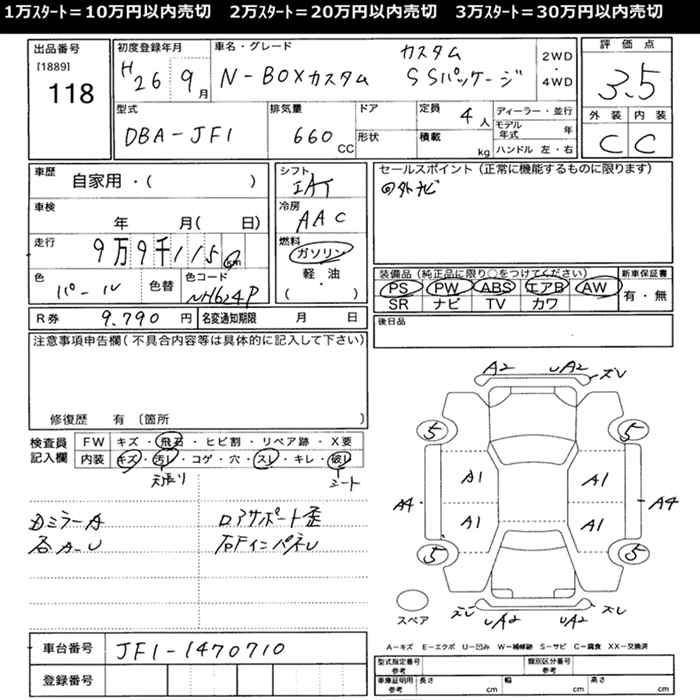 1万ｽﾀｰﾄ＝10万円以内売切　2万ｽﾀｰﾄ＝20万円以内売切　3万ｽﾀｰﾄ＝30万円以内売切
出品番号
[1889]
118
初度登録年月
H26 9月
車名・グレード
N-BOXカスタム
カスタム
SSパッケージ
2WD
・
4WD
評価点
3.5
外装 内装
C C
型式
DBA-JF1
排気量
660 CC
ドア
形状
定員 4人
積載 kg
ディーラー・並行
モデル年式 年
ハンドル 左・右
車歴
自家用・( )
車検
年 月( 日)
走行 9万9千115 km
色
パール
色替
色コード
NH624P
シフト
IAT
冷房
AAC
燃料
ガソリン
軽・油
( ・ )
セールスポイント (正常に機能するものに限ります)
◎外ナビ
装備品 (純正品に限り○をつけてください)
新車保証書
PS PW ABS エアB AW
有・無
SR ナビ TV カワ
R券 9.790 円
名変通知期限 月 日
後日品
注意事項申告欄 (不具合内容等は具体的に記入して下さい)
修復歴 有 〔箇所 〕
検査員
記入欄
FW キズ・飛石・ヒビ割・リペア跡・X要
内装 キズ・汚レ・コゲ・穴・スレ・キレ・破レ
天張り
シート
ミラーA
各A-U
ロアサポート歪
右Fインパネ
A2 UA2 ズレ
5 5
A1 A1
A4 A4
A1 A1
5 5
ズレ UA2 UA2 ズレ
スペア
A－キズ E－エクボ U－凹み W－補修跡 S－サビ C－腐食 XX－交換済
車台番号 JF1-1470710
登録番号
型式指定番号 参考
類別区分番号 参考
車庫証明用 参考
長さ cm
幅 cm
高さ cm